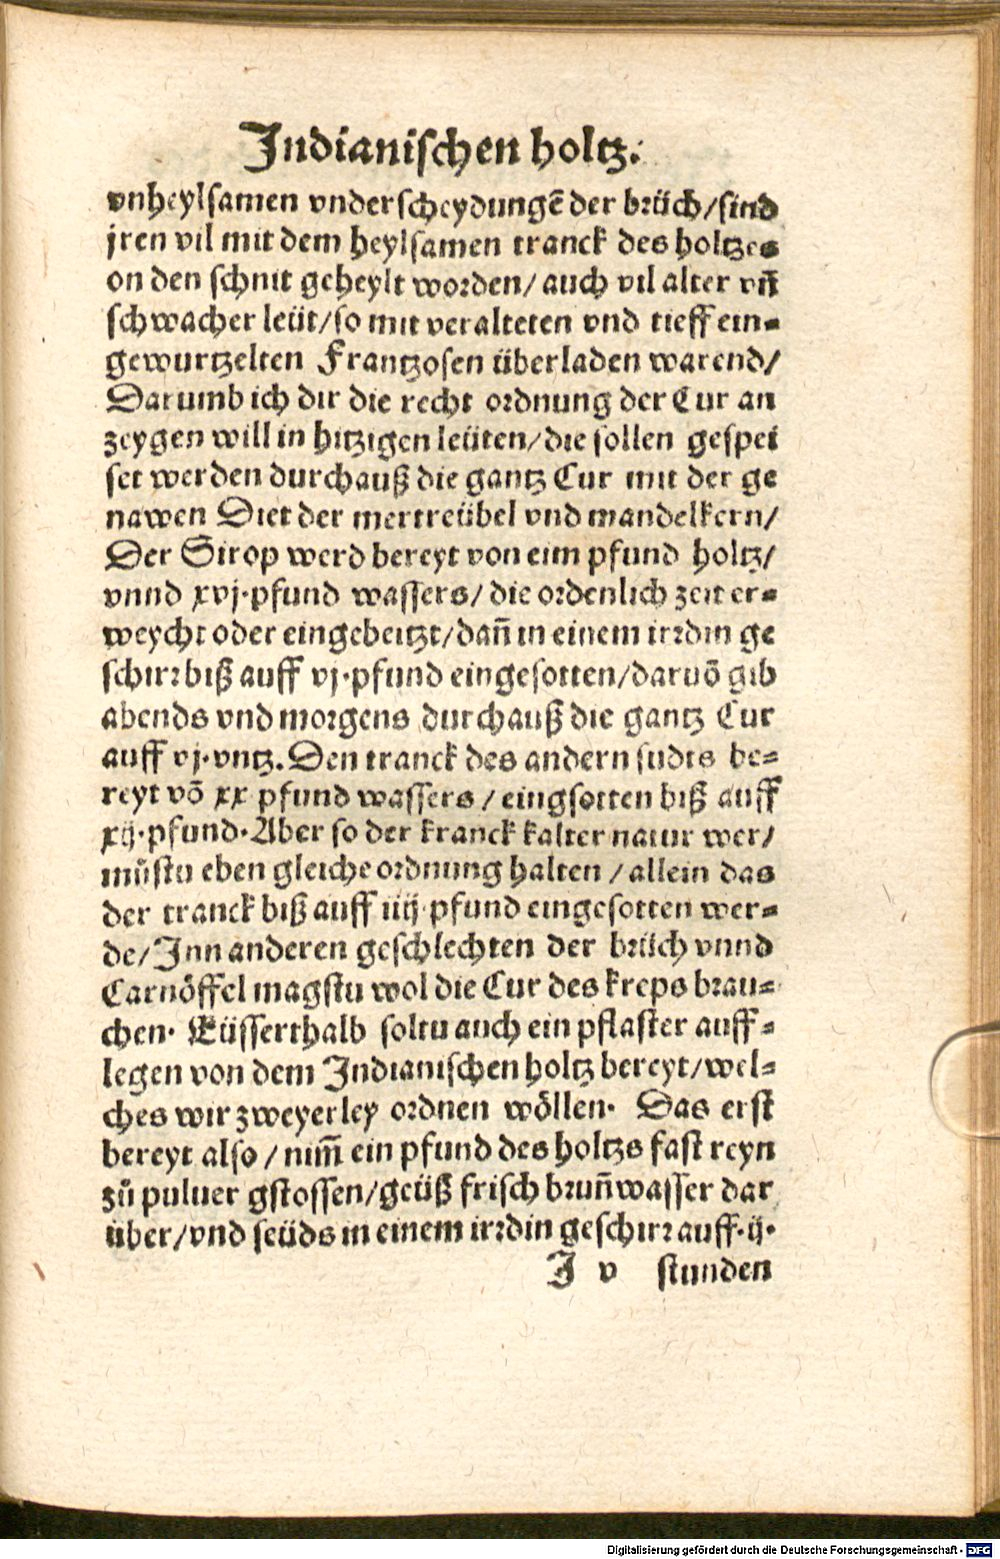 Indianischen holtz.
vnheylsamen vnderscheydungē der brüch/sind
jren vil mit dem heylsamen tranck des holtzes
on den schnit geheylt worden/auch vil alter vñ
schwacher leüt/so mit veralteten vnd tieff ein⸗
gewurtzelten Frantzosen überladen warend/
Darumb ich dir die recht ordnung der Cur an
zeygen will in hitzigen leüten/die sollen gespei
set werden durchauß die gantz Cur mit der ge
nawen Diet der mertreübel vnd mandelkern/
Der Sirop werd bereyt von eim pfund holtz/
vnnd xvj·pfund wassers/die ordenlich zeit er⸗
weycht oder eingebeitzt/dañ in einem irrdin ge
schirr biß auff vj·pfund eingesotten/daruō gib
abends vnd morgens durchauß die gantz Cur
auff vj·vntz. Den tranck des andern sudts be⸗
reyt vō xx pfund wassers/eingsotten biß auff
xij·pfund·Aber so der kranck kalter natur wer/
můstu eben gleiche ordnung halten/allein das
der tranck biß auff iiij·pfund eingesotten wer⸗
de/Inn anderen geschlechten der brüch vnnd
Carnöffel magstu wol die Cur des kreps brau⸗
chen· Eüsserthalb soltu auch ein pflaster auff⸗
legen von dem Indianischen holtz bereyt/wel⸗
ches wir zweyerley ordnen wöllen· Das erst
bereyt also/nim̄ ein pfund des holtzs fast reyn
zů puluer gstossen/geüß frisch bruñwasser dar
über/vnd seüds in einem irrdin geschirr auff·ij·
I v stunden
Digitalisierung gefördert durch die Deutsche Forschungsgemeinschaft - DFG